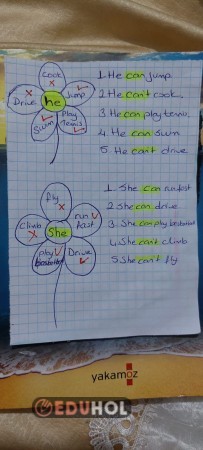 cook
Drive
he
Jump
Swim
Play
Tennis
1. He can jump
2. He can't cook.
3. He can play tennis,
4. He can swim
5. He can't drive
fly
Climb
She
run
fast
play
Drive
1. She can run fast
2. She can drive
3. She can play
4. She can't climb
5. She can't fly
yakamoz
EDUHOL